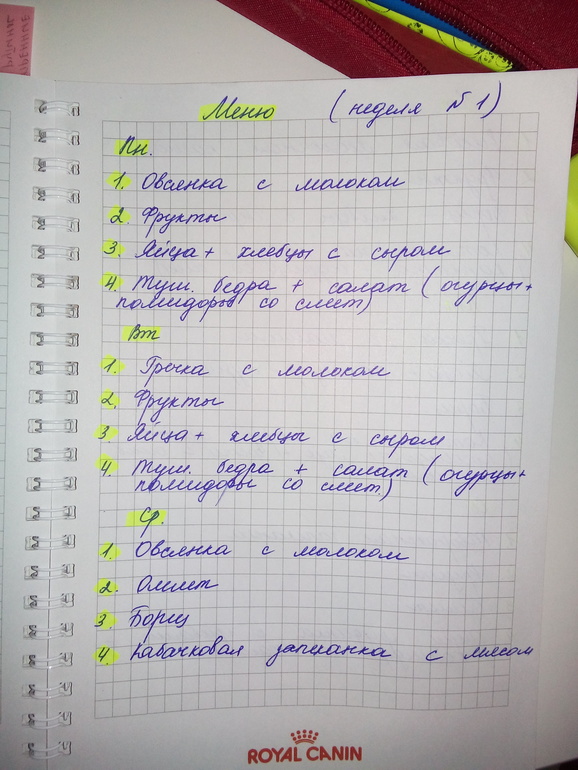 Меню (неделя №1)
Пн.
1. Овсянка с молоком
2. Фрукты
3. Яйца + хлебцы с сыром
4. Туш. бедра + салат (огурцы+
помидоры со смет)
Вт
1. Гречка с молоком
2. Фрукты
3. Яйца + хлебцы с сыром
4. Туш. бедра + салат (огурцы+
помидоры со смет)
Ср.
1. Овсянка с молоком
2. Омлет
3. Борщ
4. Кабачковая запеканка с мясом
ROYAL CANIN